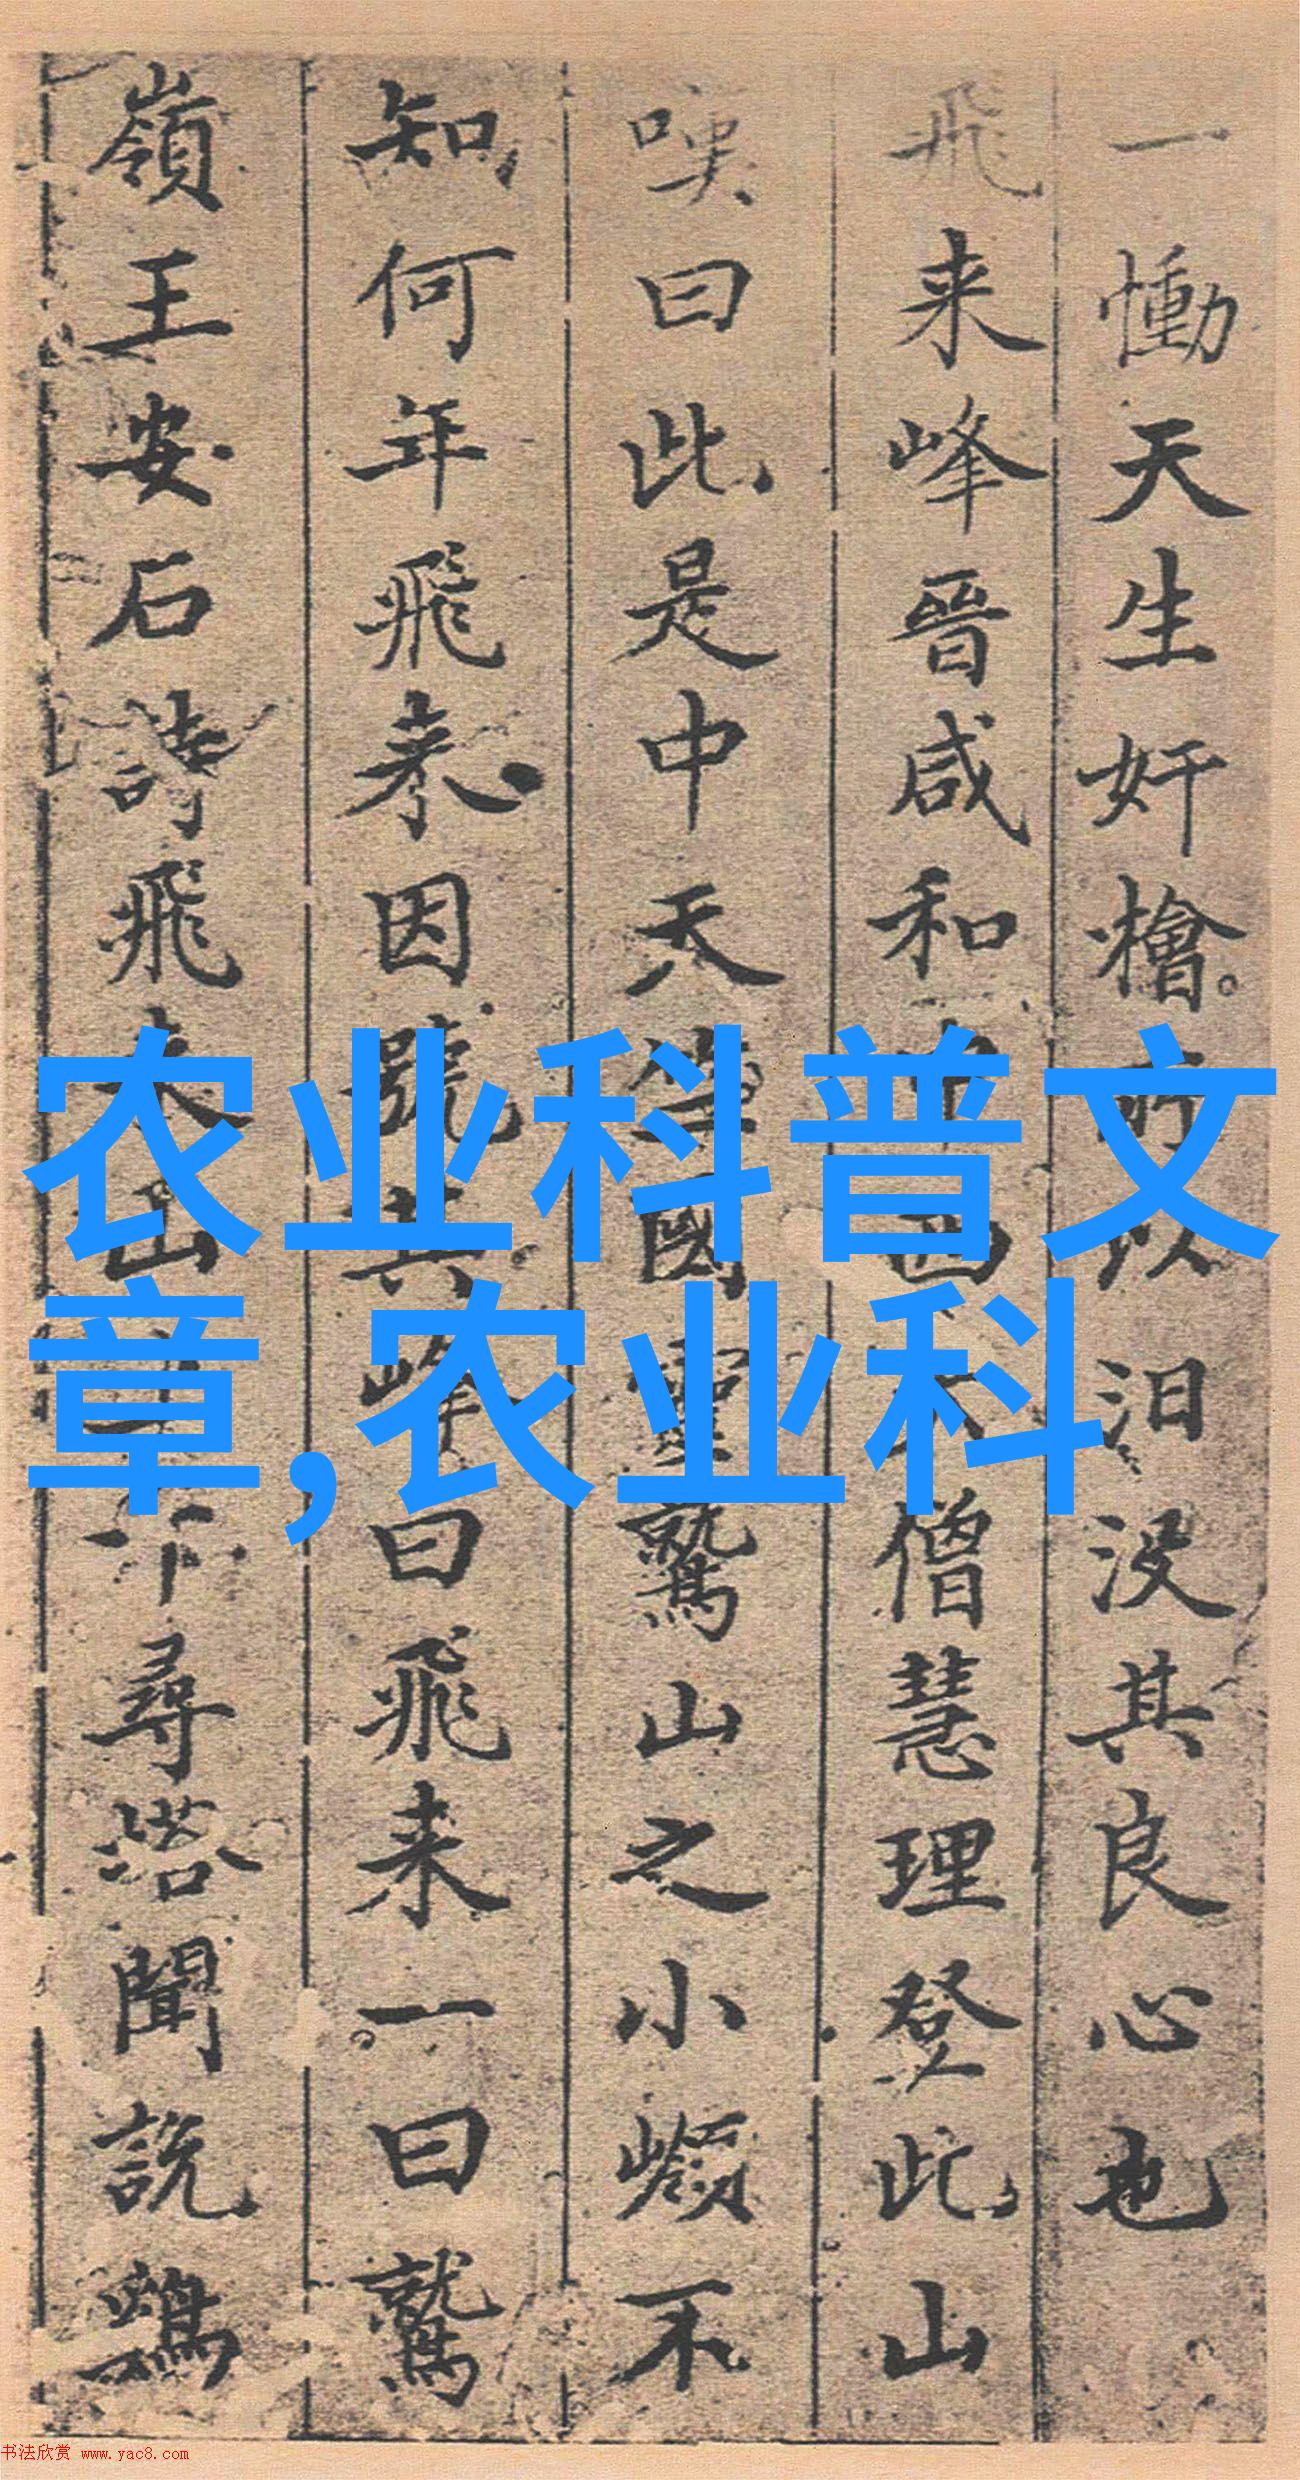 一慟天生奸檜所以汨没其良心也
飛来峰晉咸和西僧慧理登此山
嘆曰此是中天 國靈鷲山之小嶺不
知何年飛来因號其峰曰飛来一曰鷲
嶺王安石詩飛来山 尋塔聞説鷄
农业科普文
章,农业科
书法欣赏 www.yac8.com